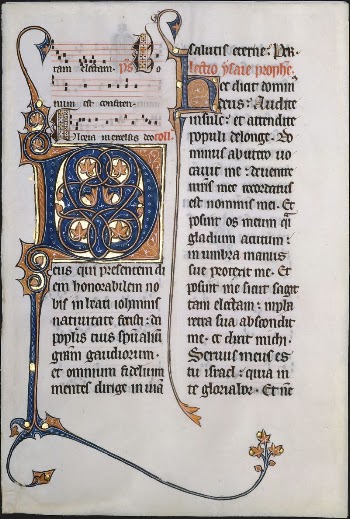 tam electam. ps
num est confiteri
Gloria in excelsis deo coll.
Deus qui presentem di
em honorabilem no
bis in beati iohannis
natiuitate fecisti: da
populis tuis spualium
gram gaudiorum.
et omnium fidelium
mentes dirige in uiam
salutis eterne. Per.
lectio ysaie prophe.
Hec dicit domin
deus: Audite
insule: et attendite
populi de longe. Do
minus ab utero uo
cauit me: de uentre
matris mee recordatus
est nominis mei. Et
posuit os meum qsi
gladium acutum:
in umbra manus
sue protexit me. Et
posuit me sicut sagit
tam electam: in pha
retra sua abscondit
me. et dixit michi.
Seruus meus es
tu israel: quia in
te gloriabor. Et nc